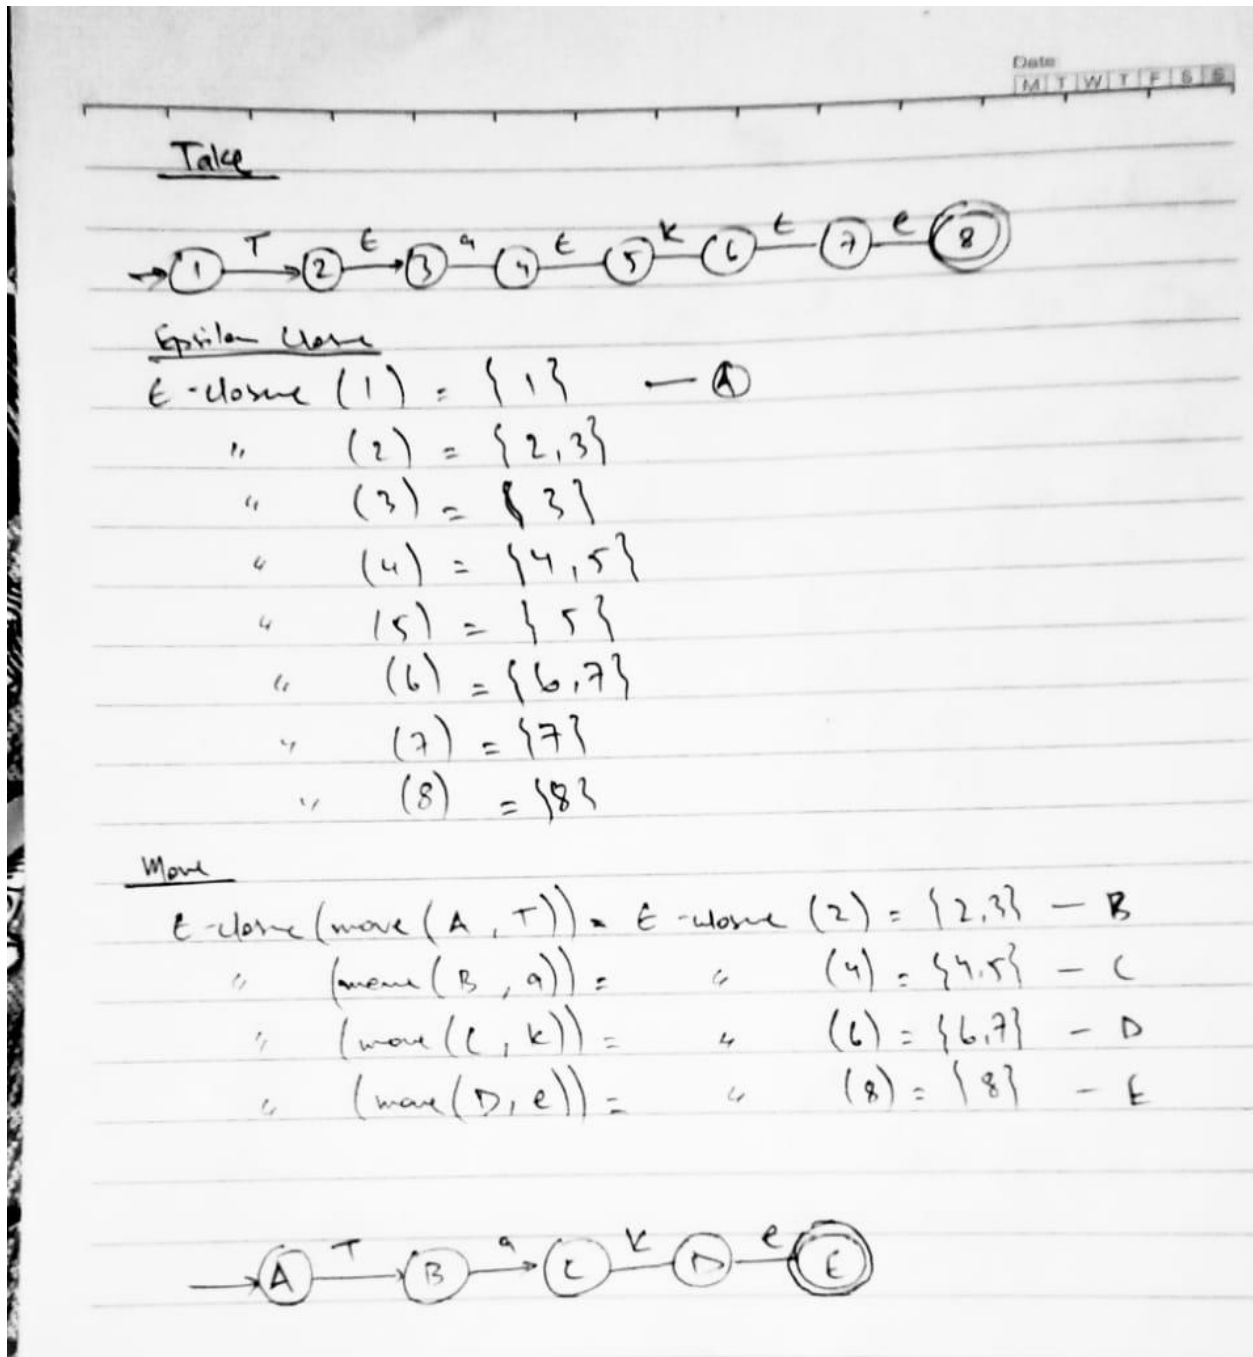 Date
M T W T F S S
Take
T ε a ε k ε e
1 2 3 4 5 6 7 8
Epsilon Closure
ε-closure (1) = {1} — A
" (2) = {2,3}
" (3) = {3}
" (4) = {4,5}
" (5) = {5}
" (6) = {6,7}
" (7) = {7}
" (8) = {8}
Move
ε-closure (move (A, T)) = ε-closure (2) = {2,3} — B
" (move (B, a)) = " (4) = {4,5} — C
" (move (C, k)) = " (6) = {6,7} — D
" (move (D, e)) = " (8) = {8} — E
T a k e
A B C D E